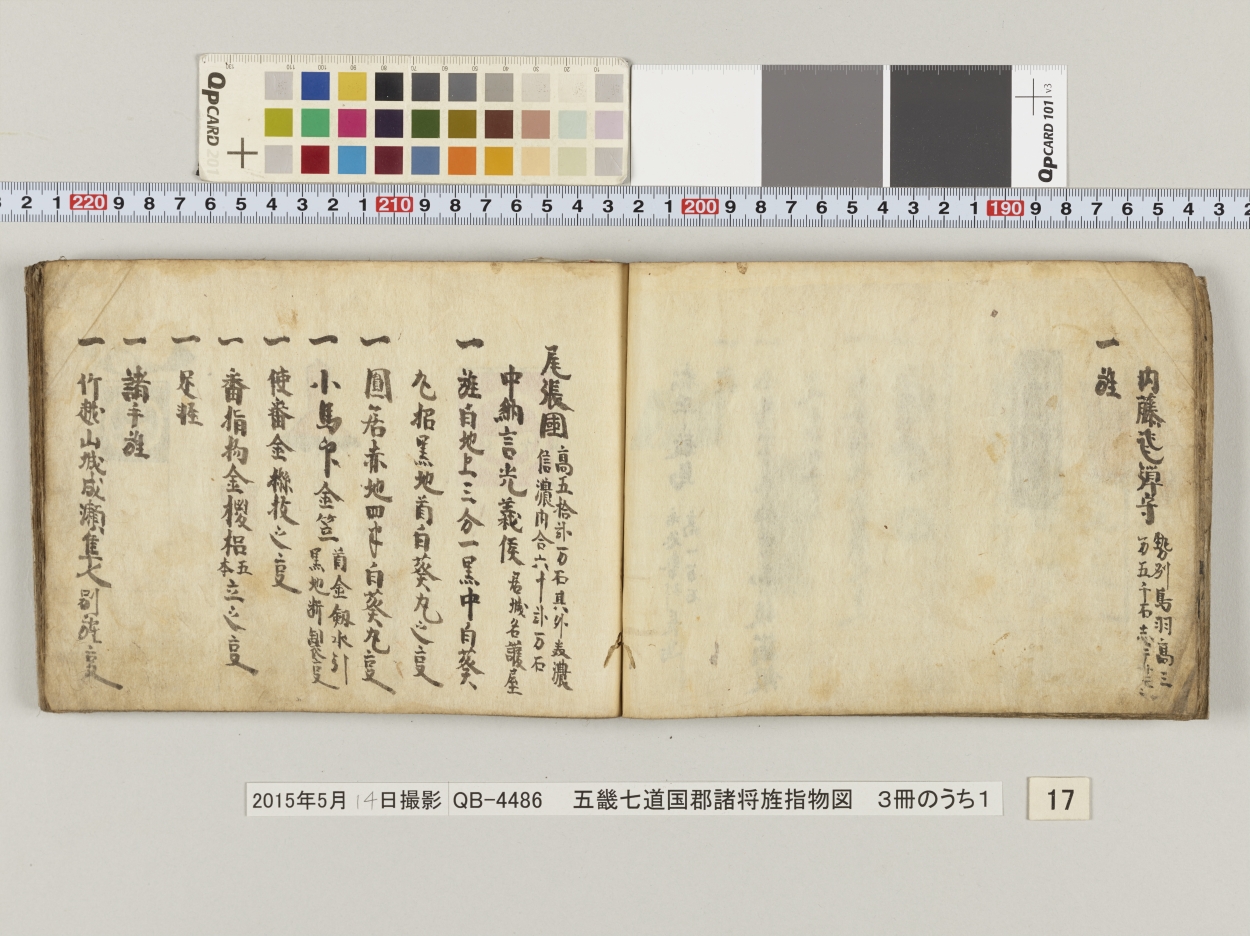 QPCARD 201
QPCARD 101 v3
2 1 220 9 8 7 6 5 4 3 2 1 210 9 8 7 6 5 4 3 2 1 200 9 8 7 6 5 4 3 2 1 190 9 8 7 6 5 4 3 2
内藤飛弾守 勢州鳥羽高三
万五千石
一 旌
尾張国 高五拾弐万石其外美濃
信濃内合六十弐万石
中納言光義侯 居城名護屋
一 旌白地上三分一黒中白葵
丸招黒地首白葵丸之変
一 圓居赤地四半白葵丸変
一 小馬印金笠 首金銀水引
黒地
一 使番金 之変
一 番指物金 五
本立之変
一 足軽
一 諸手旌
一 竹越山城成瀬隼人別旌変
2015年5月14日撮影 QB-4486 五畿七道国郡諸将旌指物図 3冊のうち1
17